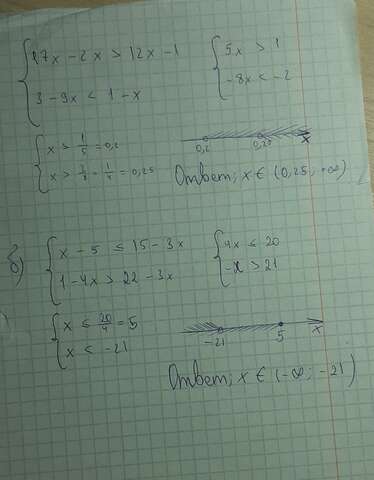 { 17x - 2x > 12x - 1
3 - 9x < 1 - x
{ 5x > 1
-8x < -2
{ x > 1/5 = 0,2
x > 2/8 = 1/4 = 0,25
0,2 0,25 x
Ответ; x ∈ (0,25; +∞)
б) { x - 5 ≤ 15 - 3x
1 - 4x > 22 - 3x
{ 4x ≤ 20
-x > 21
{ x ≤ 20/4 = 5
x < -21
-21 5 x
Ответ; x ∈ (-∞; -21)